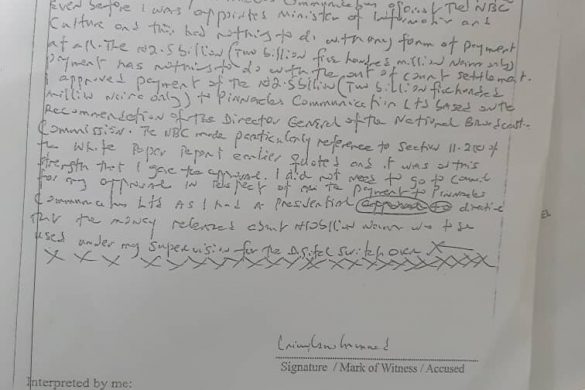 even before I was appointed Minister of Information and
Culture and this had nothing to do with any form of payment
at all. The N2.5billion (Two billion five hundred million Naira only)
payment has nothing to do with the out of court settlement.
I approved payment of the N2.5billion (Two billion five hundred
million Naira only) to Pinnacle Communication Ltd based on the
Recommendation of the Director General of the National Broadcast-
Commission. The NBC made particularly reference to Section 11.2
of the White Paper Report earlier quoted and it was on this
strength that I gave the approval. I did not need to go to Council
for my approval in respect of the payment to Pinnacle
Communication Ltd as I had a Presidential approval directive
that the money released about N10billion Naira to be
used under my supervision for the Digital Switch Over
xxxxxxxxxxxxxxxxxxxx
Signature / Mark of Witness / Accused
Interpreted by me: